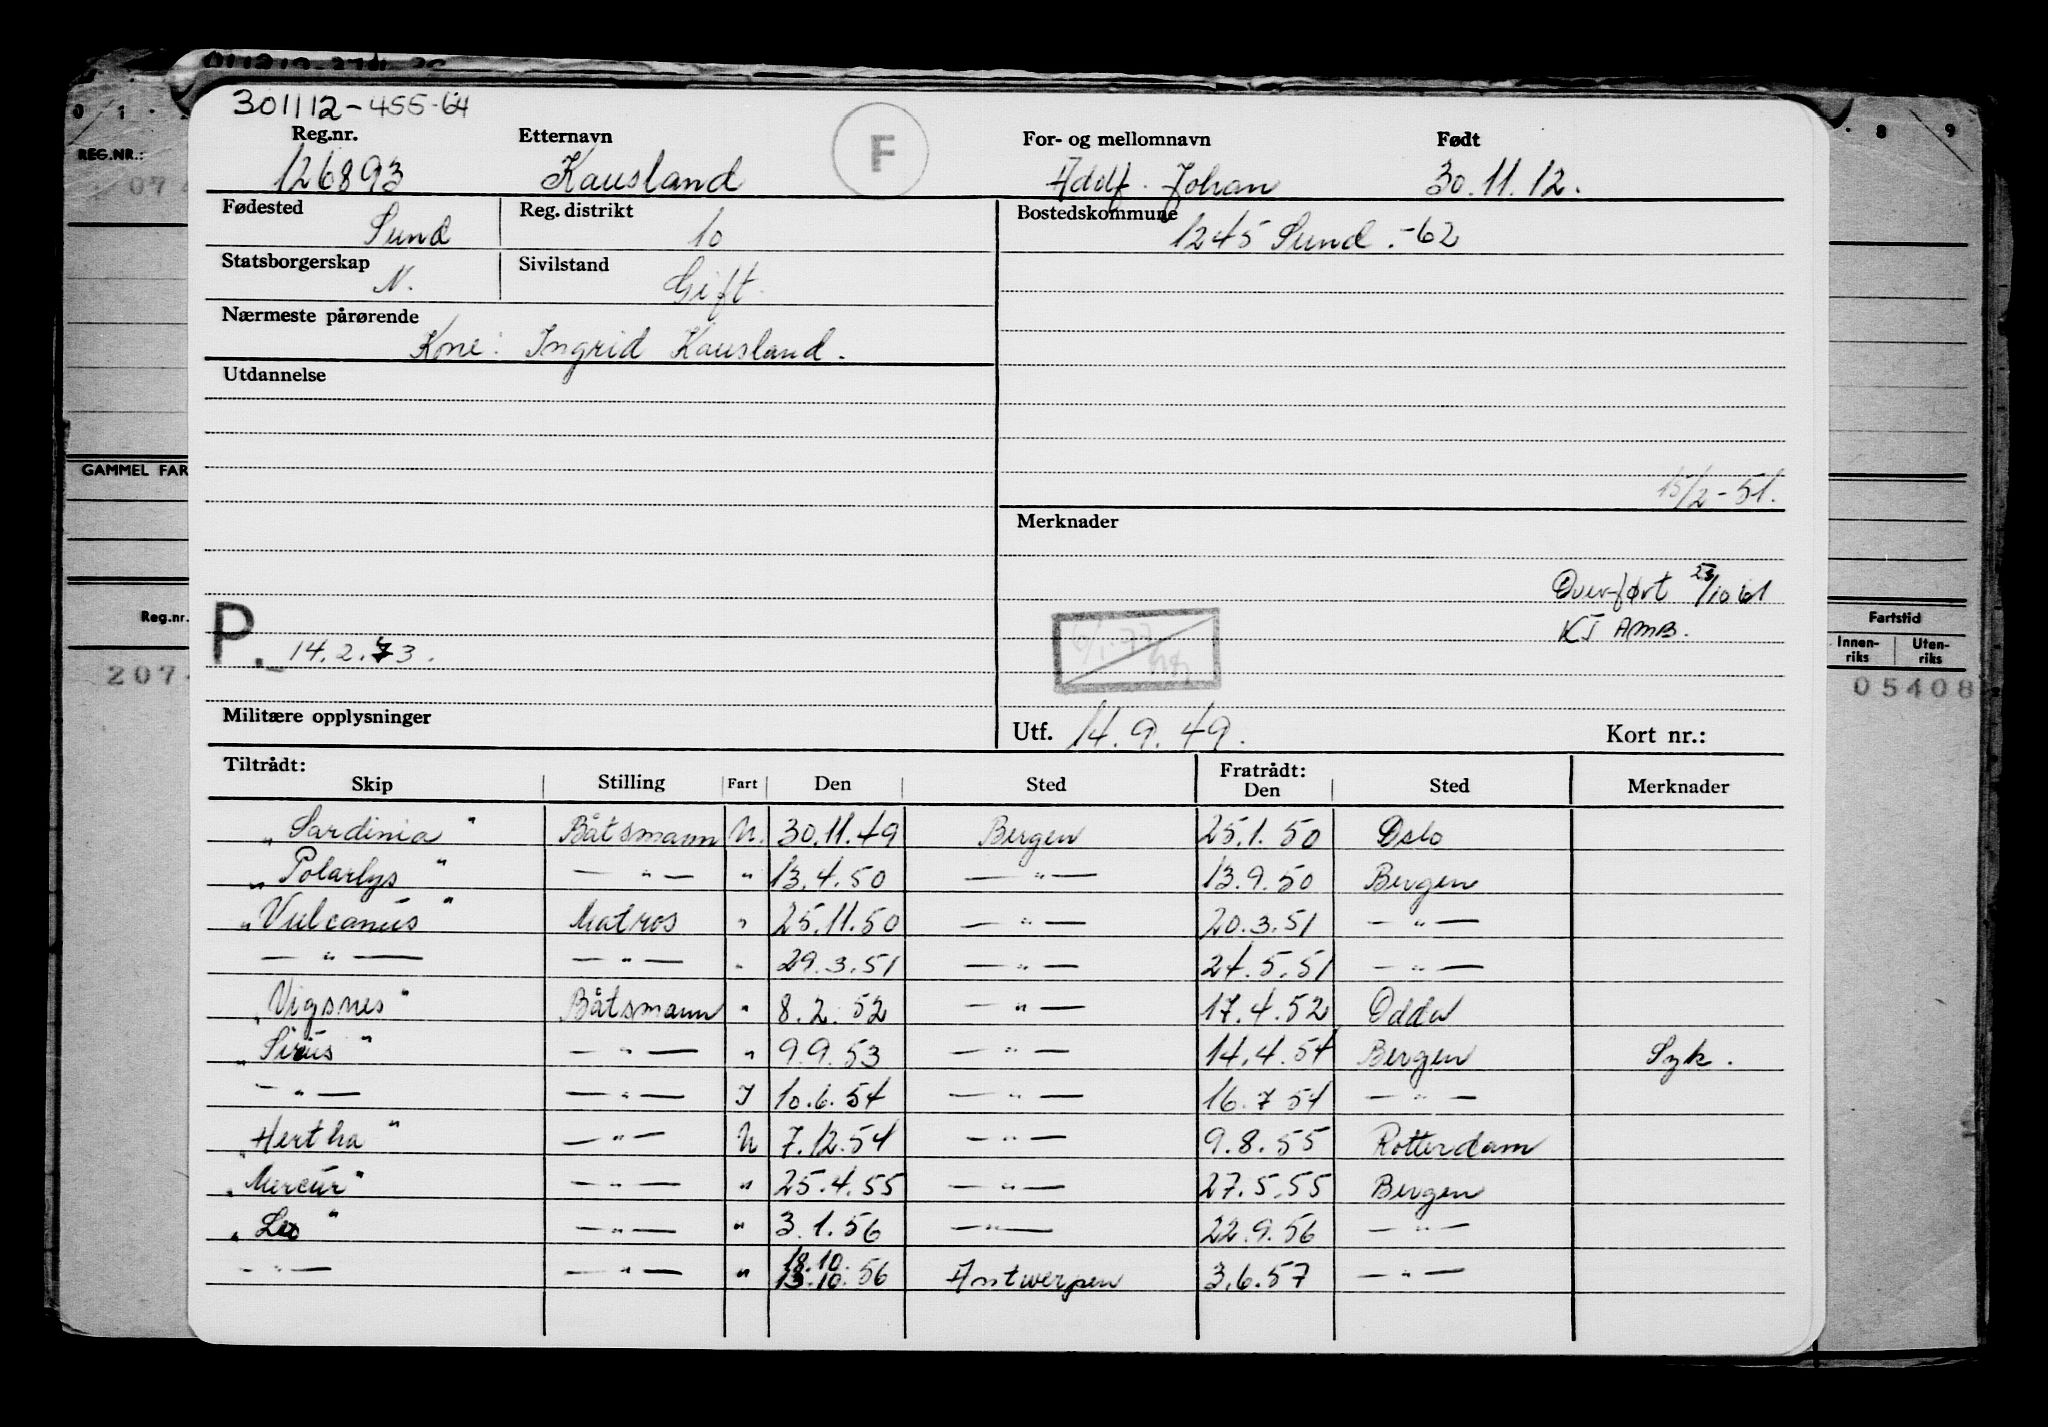 301112-455-64
Reg.nr. Etternavn F For- og mellomnavn Født
126893 Kausland Adolf Johan 30.11.12.
Fødested Sund Reg. distrikt 10 Bostedskommune 1245 Sund.-62
Statsborgerskap N. Sivilstand Gift
Nærmeste pårørende
Kone: Ingrid Kausland.
Utdannelse
15/2-51.
Merknader
Overført 23/10 61
KJ AMB.
P. 14.2.73.
Militære opplysninger Utf. 14.9.49. Kort nr.:
Tiltrådt: Fratrådt:
Skip Stilling Fart Den Sted Den Sted Merknader
„Sardinia" Båtsmann U. 30.11.49 Bergen 25.1.50 Oslo
„Polarlys" — " — " 13.4.50 — " — 13.9.50 Bergen
„Vulcanus" Matros " 25.11.50 — " — 20.3.51 — " —
— " — — " — " 29.3.51 — " — 24.5.51 — " —
„Vigsnes" Båtsmann " 8.2.52 — " — 17.4.52 Odda
„Sirius" — " — " 9.9.53 — " — 14.4.54 Bergen Syk.
— " — — " — I 10.6.54 — " — 16.7 54 — " —
„Hertha" — " — U 7.12.54 — " — 9.8.55 Rotterdam
„Mercur" — " — " 25.4.55 — " — 27.5.55 Bergen
„Leo" — " — " 3.1.56 — " — 22.9.56 — " —
18.10.
— " — — " — " 13.10.56 Antwerpen 3.6.57 — " —
REG.NR.:
GAMMEL FAR
Reg.nr.
2074
8 9
Fartstid
Innen-riks Uten-riks
05408